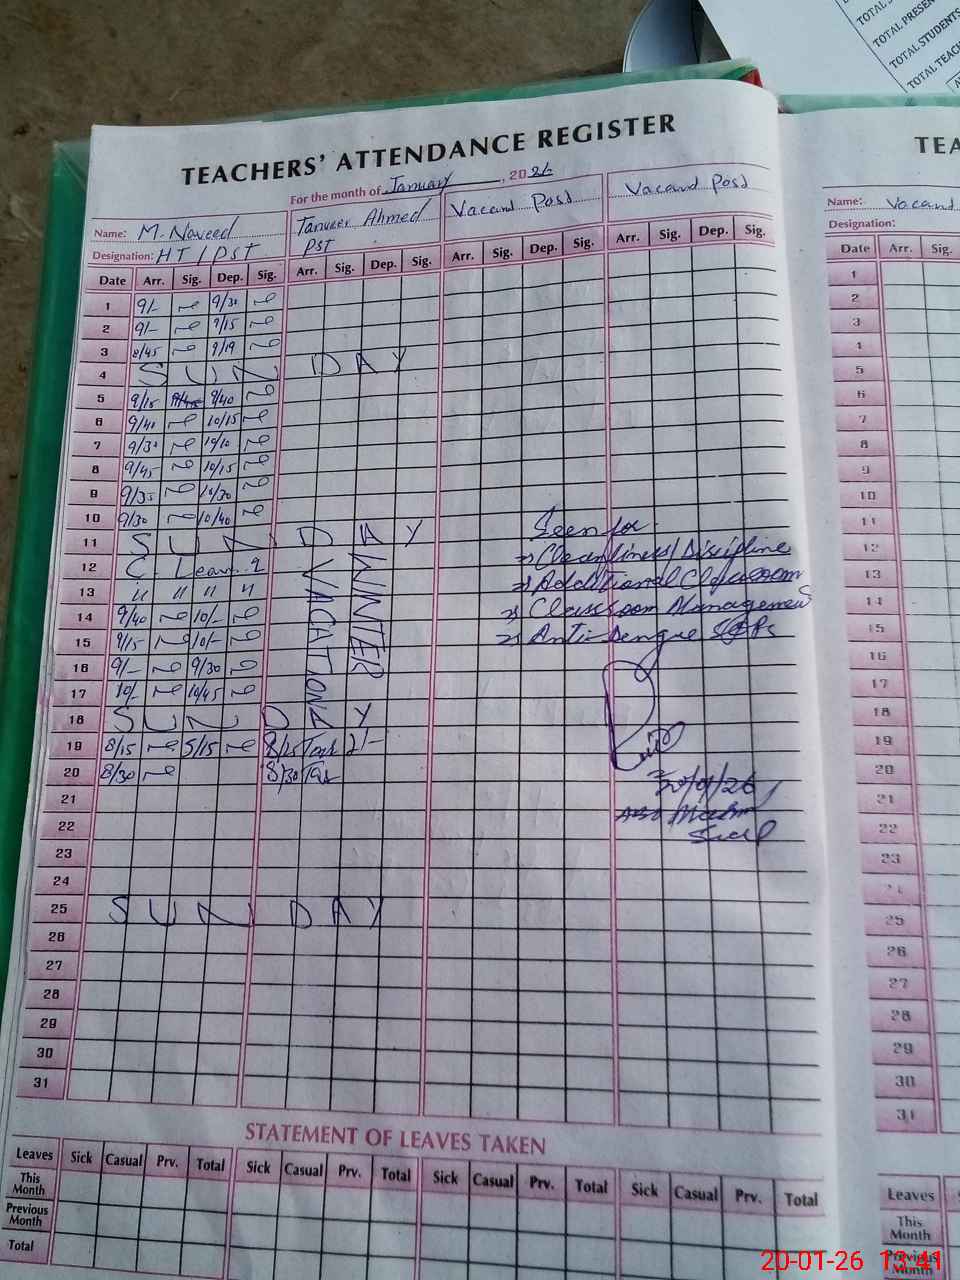 TOTAL PRESEN
TOTAL STUDENTS
TOTAL TEAC
TEACHERS' ATTENDANCE REGISTER
TEA
For the month of January, 2026
Name: M. Naveed
Tanveer Ahmed
Vacand Post
Vacand Post
Name: Vacand
Designation: HT / PST
PST
Designation:
Date Arr. Sig. Dep. Sig. Arr. Sig. Dep. Sig. Arr. Sig. Dep. Sig. Arr. Sig. Dep. Sig.
Date Arr. Sig
1 9/- 9/30
2 9/- 9/15
3 8/45 9/19
4 SUN DAY
5 9/15 9/40
6 9/40 10/15
7 9/30 10/10
8 9/45 10/15
9 9/35 10/30
10 9/30 10/40
11 SUN DAY
12 C. Leave
13 " " " "
14 9/40 10/-
15 9/15 10/-
16 9/- 9/30
17 10/- 10/45
18 SUN DAY
19 8/15 5/15 8/25 2/-
20 8/30 8/30
21
22
23
24
25 SUN DAY
26
27
28
29
30
31
WINTER
VACATION
Seen for
→ Cleanliness/Discipline
→ Additional Classroom
→ Classroom Management
→ Anti-Dengue SOPs
20/01/26
STATEMENT OF LEAVES TAKEN
Leaves Sick Casual Prv. Total Sick Casual Prv. Total Sick Casual Prv. Total Sick Casual Prv. Total
This Month
Previous Month
Total
1
2
3
5
6
7
8
9
10
11
12
13
14
15
16
17
18
19
20
21
22
23
25
26
27
28
29
30
31
Leaves
This Month
Previous Month
20-01-26 13:41